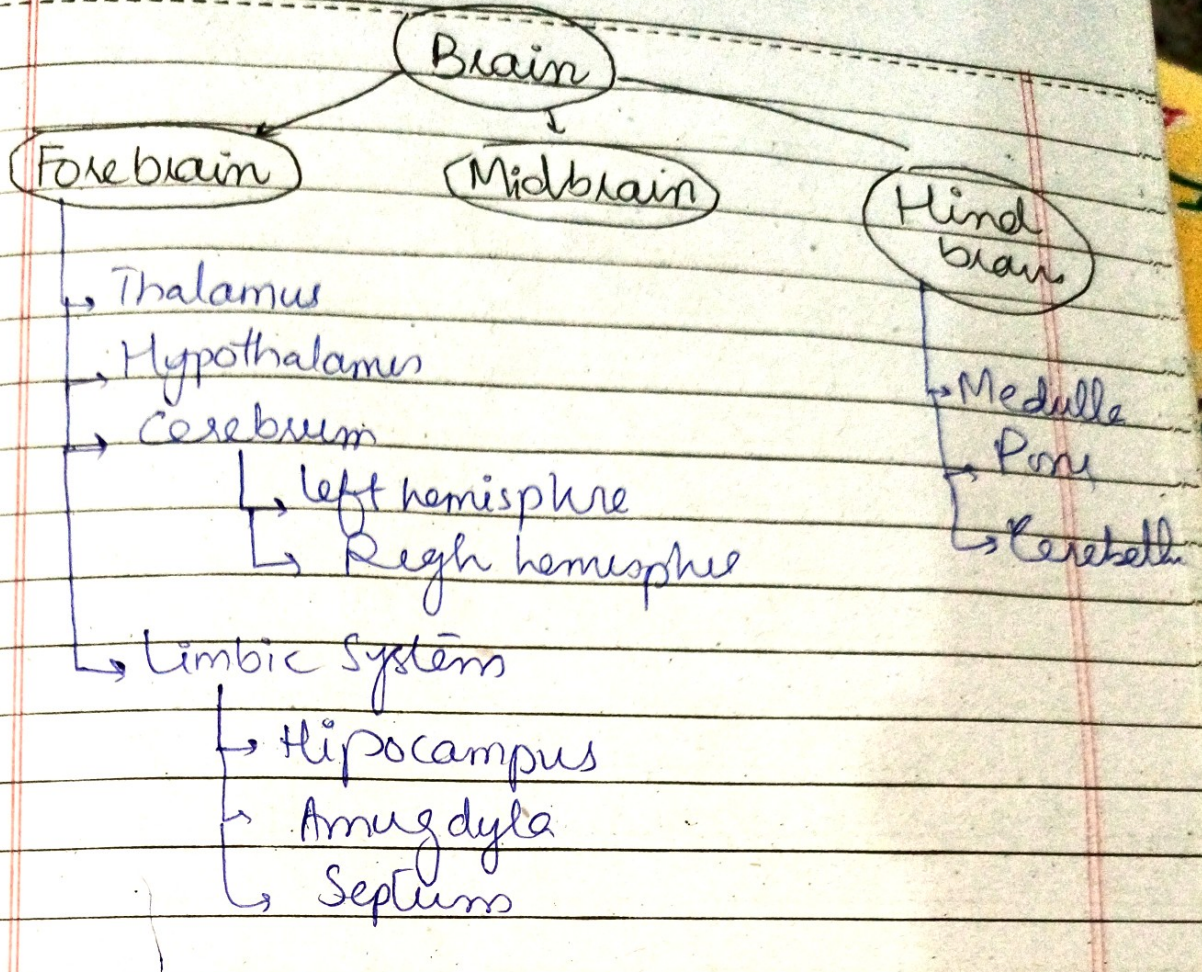 Brain
Forebrain
Midbrain
Hind
brain
Thalamus
Hypothalamus
Cerebrum
left hemisphre
Regh hemisphe
Limbic System
Hipocampus
Amugdyla
Septum
Medulla
Pons
Cerebellm